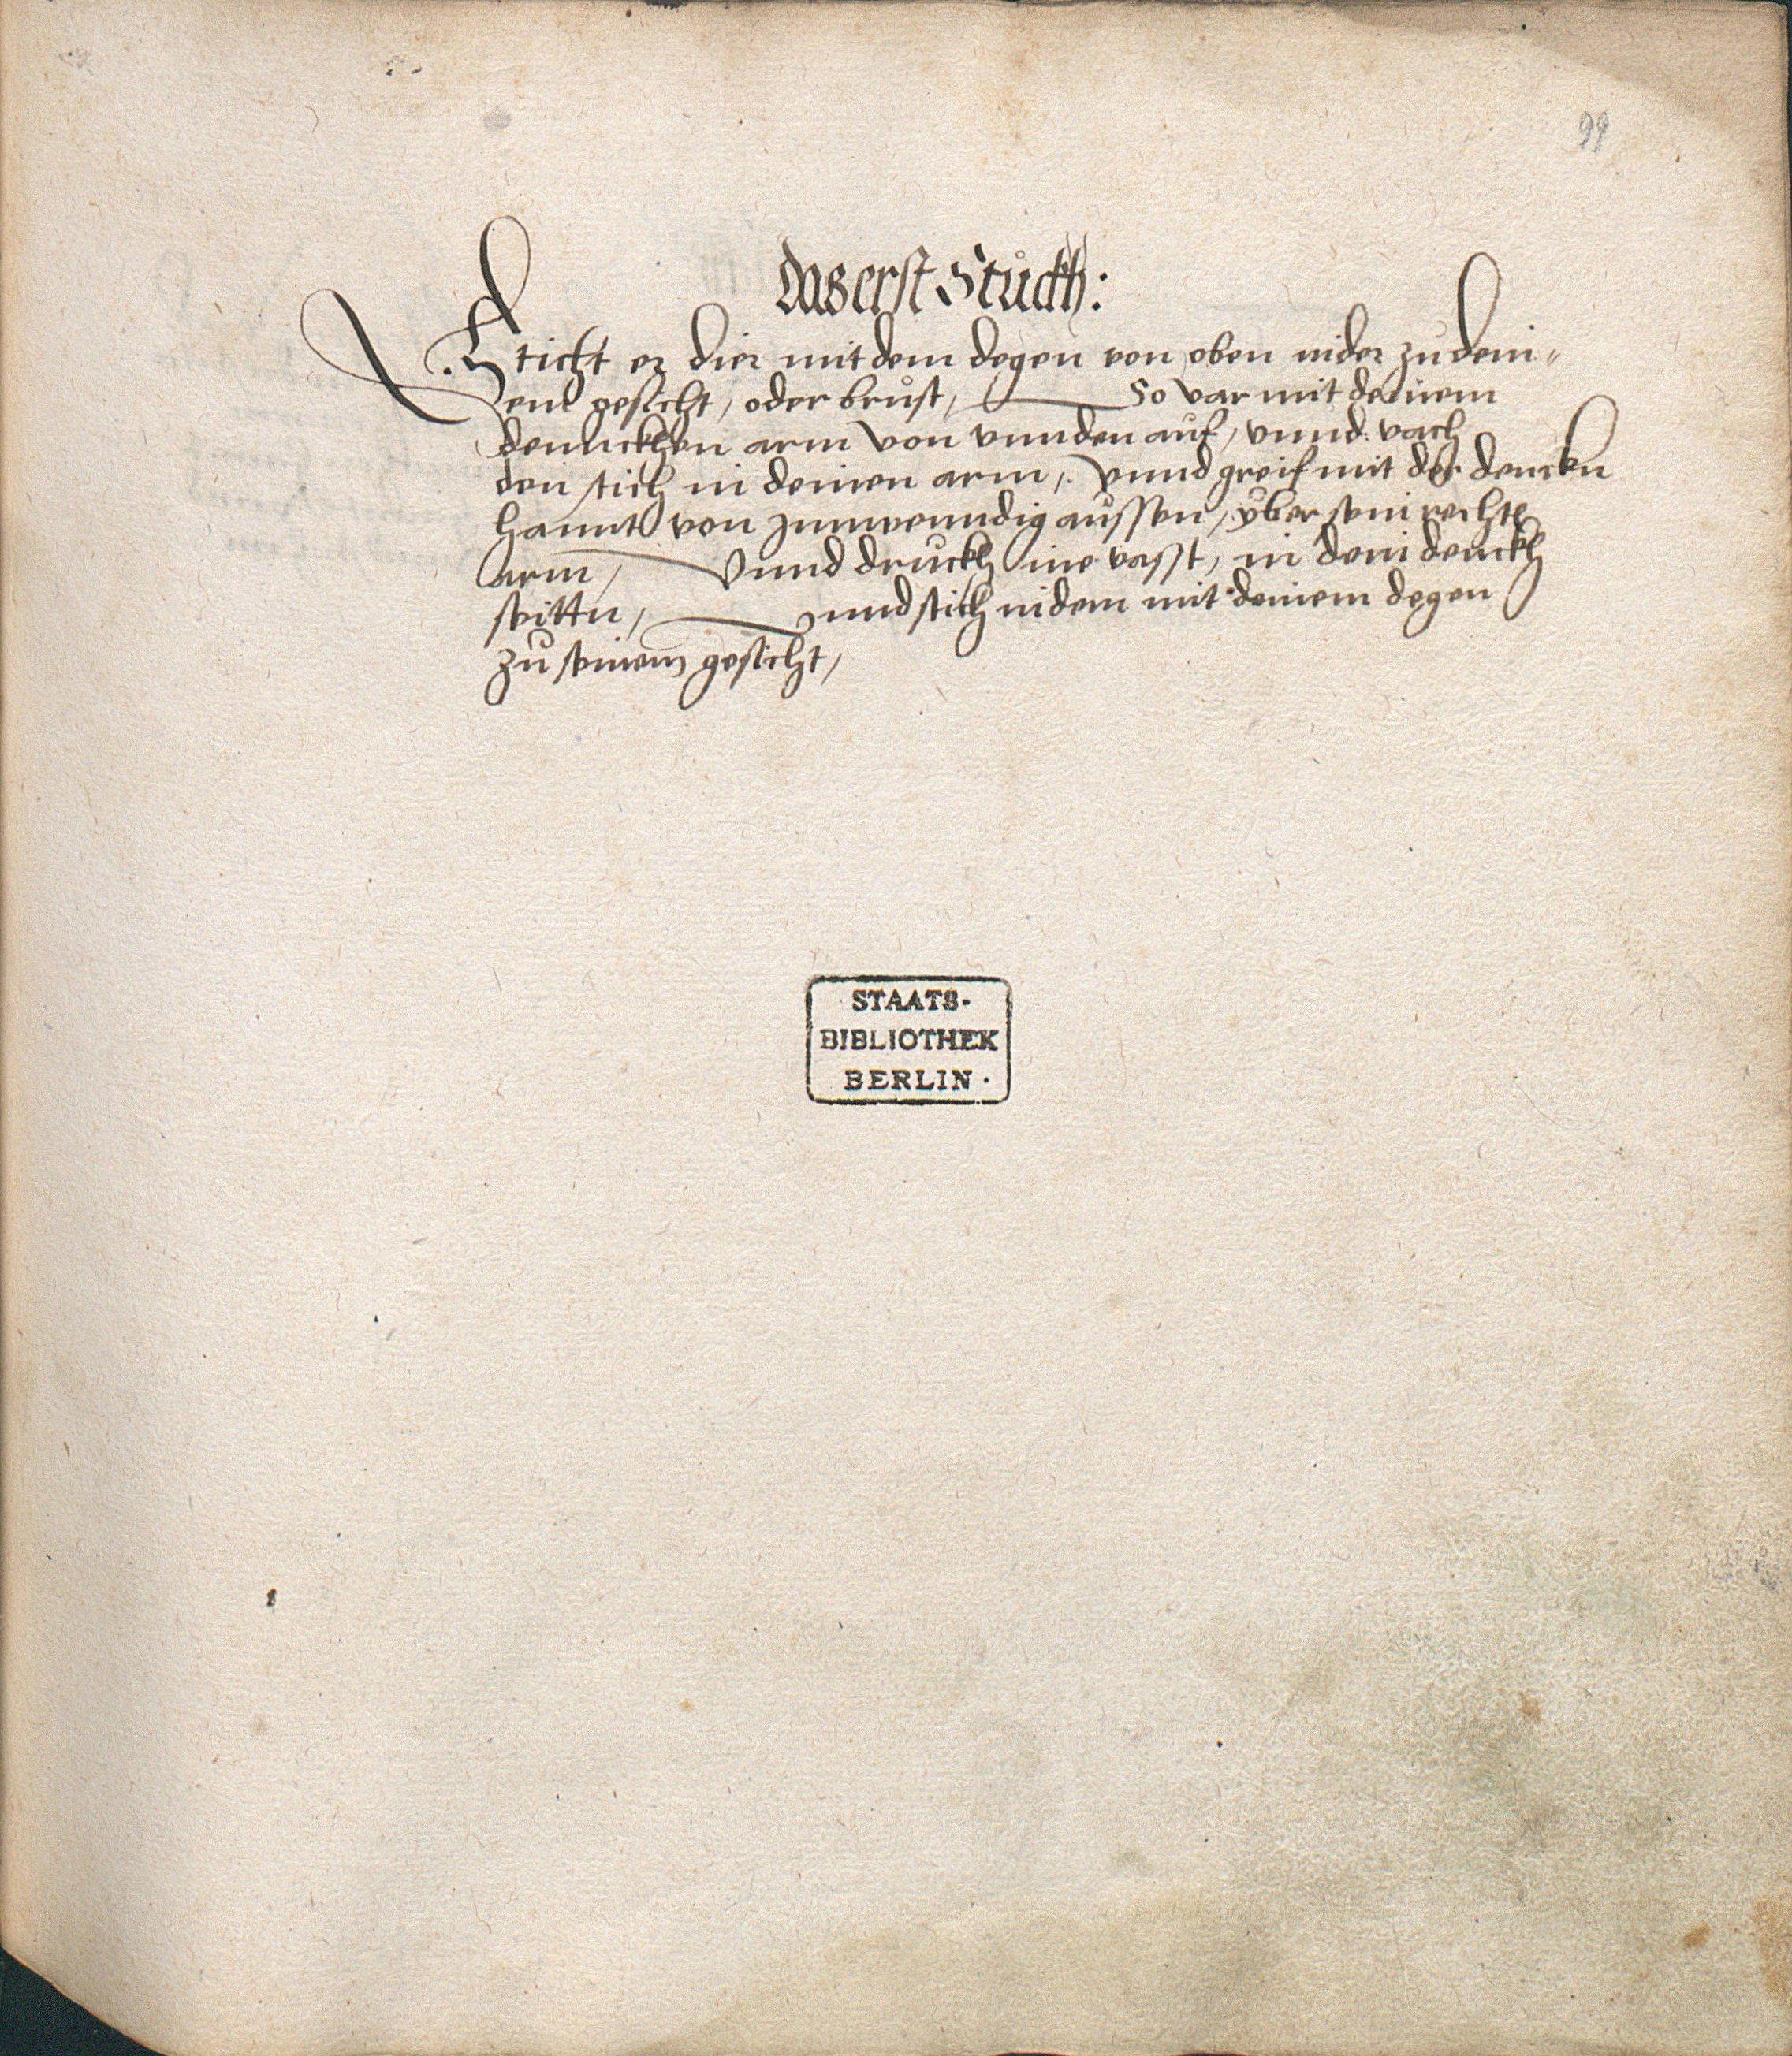 99
Das erst Stuckh:
Sticht er dier mit dem degen von oben nider zu dein-
em gesicht, oder brust, So var mit deinem
dennckhen arm von vnnden auf, vnnd vach
den stich in deinen arm, vnnd greif mit der dencken
hannt von Innwenndig aussen, yber sein rechte
arm, Vnnd druckh ine vasst, in dein denckh
seitten, vnnd stich indem mit deinem degen
zu seinem gesicht,
STAATS-
BIBLIOTHEK
BERLIN.